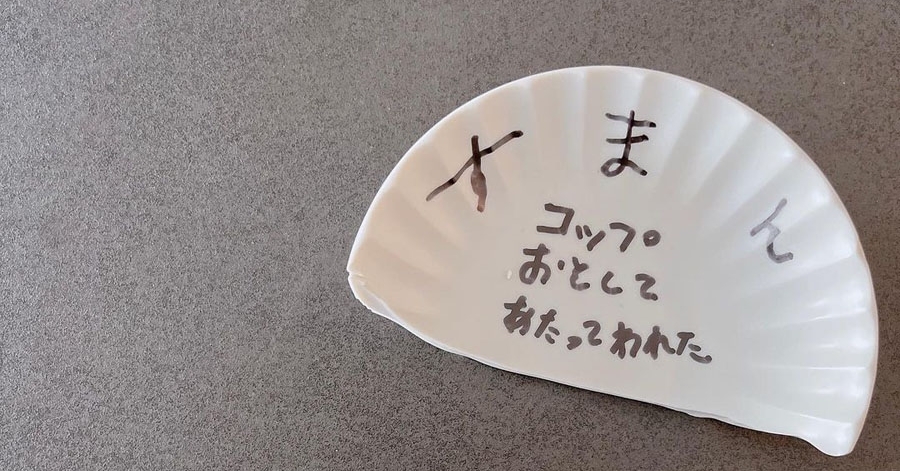 すまん
コップ
おとして
あたってわれた。